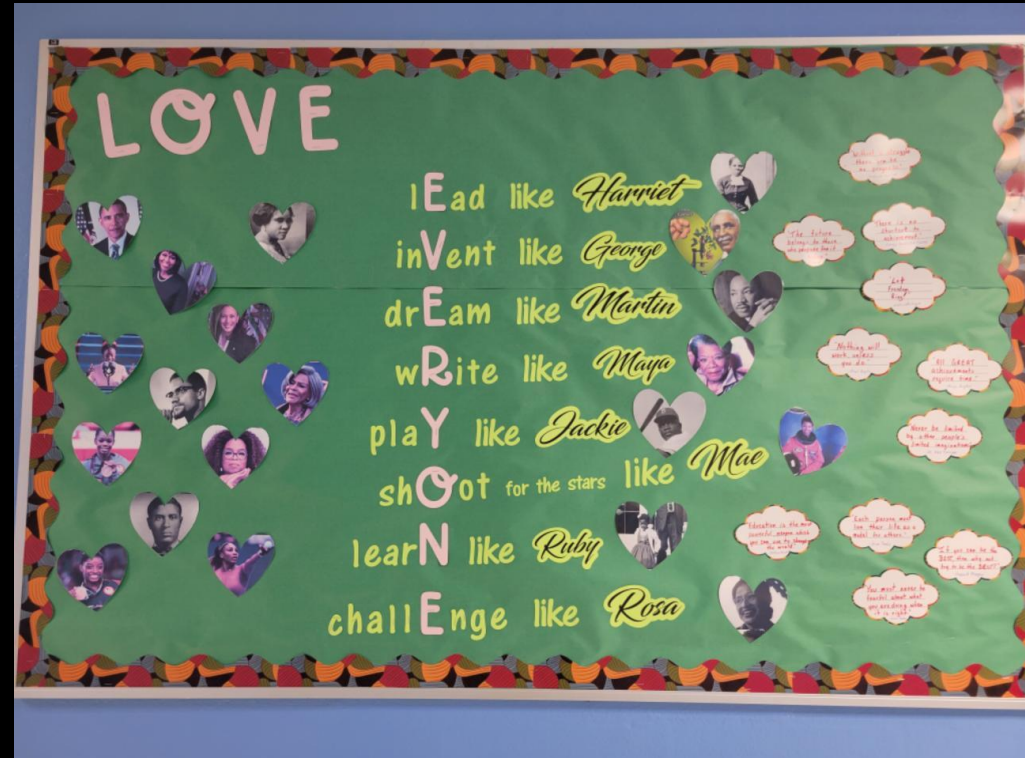 LOVE
lEad like Harriet
inVent like George
drEam like Martin
wRite like Maya
plaY like Jackie
shOot for the stars like Mae
learN like Ruby
challEnge like Rosa
Without struggle
there can be
no progress
"The future
belongs to those
who prepare for it
There is no
shortcut to
achievement"
Let
Freedom
Ring!
"Nothing will
work unless
you do"
All GREAT
achievements
require time."
Never be limited
by other people's
limited imaginations
Education is the most
powerful weapon which
you can use to change
the world"
Each person must
live their life as a
model for others."
"If you can be the
BEST, then why not
try to be the BEST"
You must never be
fearful about what
you are doing when
it is right